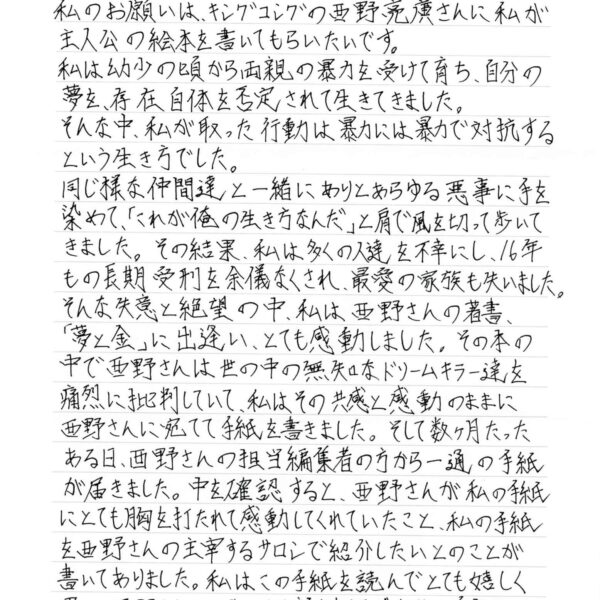 私のお願いは、キングコングの西野亮廣さんに私が
主人公の絵本を書いてもらいたいです。
私は幼少の頃から両親の暴力を受けて育ち、自分の
夢を、存在自体を否定されて生きてきました。
そんな中、私が取った行動は暴力には暴力で対抗する
という生き方でした。
同じ様な仲間達と一緒にありとあらゆる悪事に手を
染めて、「これが俺の生き方なんだ」と肩で風を切って歩いて
きました。その結果、私は多くの人達を不幸にし、16年
もの長期受刑を余儀なくされ、最愛の家族も失いました。
そんな失意と絶望の中、私は西野さんの著書、
「夢と金」に出逢い、とても感動しました。その本の
中で西野さんは世の中の無知なドリームキラー達を
痛烈に批判していて、私はその共感と感動のままに
西野さんに宛てて手紙を書きました。そして数ヶ月たった
ある日、西野さんの担当編集者の方から一通の手紙
が届きました。中を確認すると、西野さんが私の手紙
にとても胸を打たれて感動してくれていたこと、私の手紙
を西野さんの主宰するサロンで紹介したいとのことが
書いてありました。私はこの手紙を読んでとても嬉しく